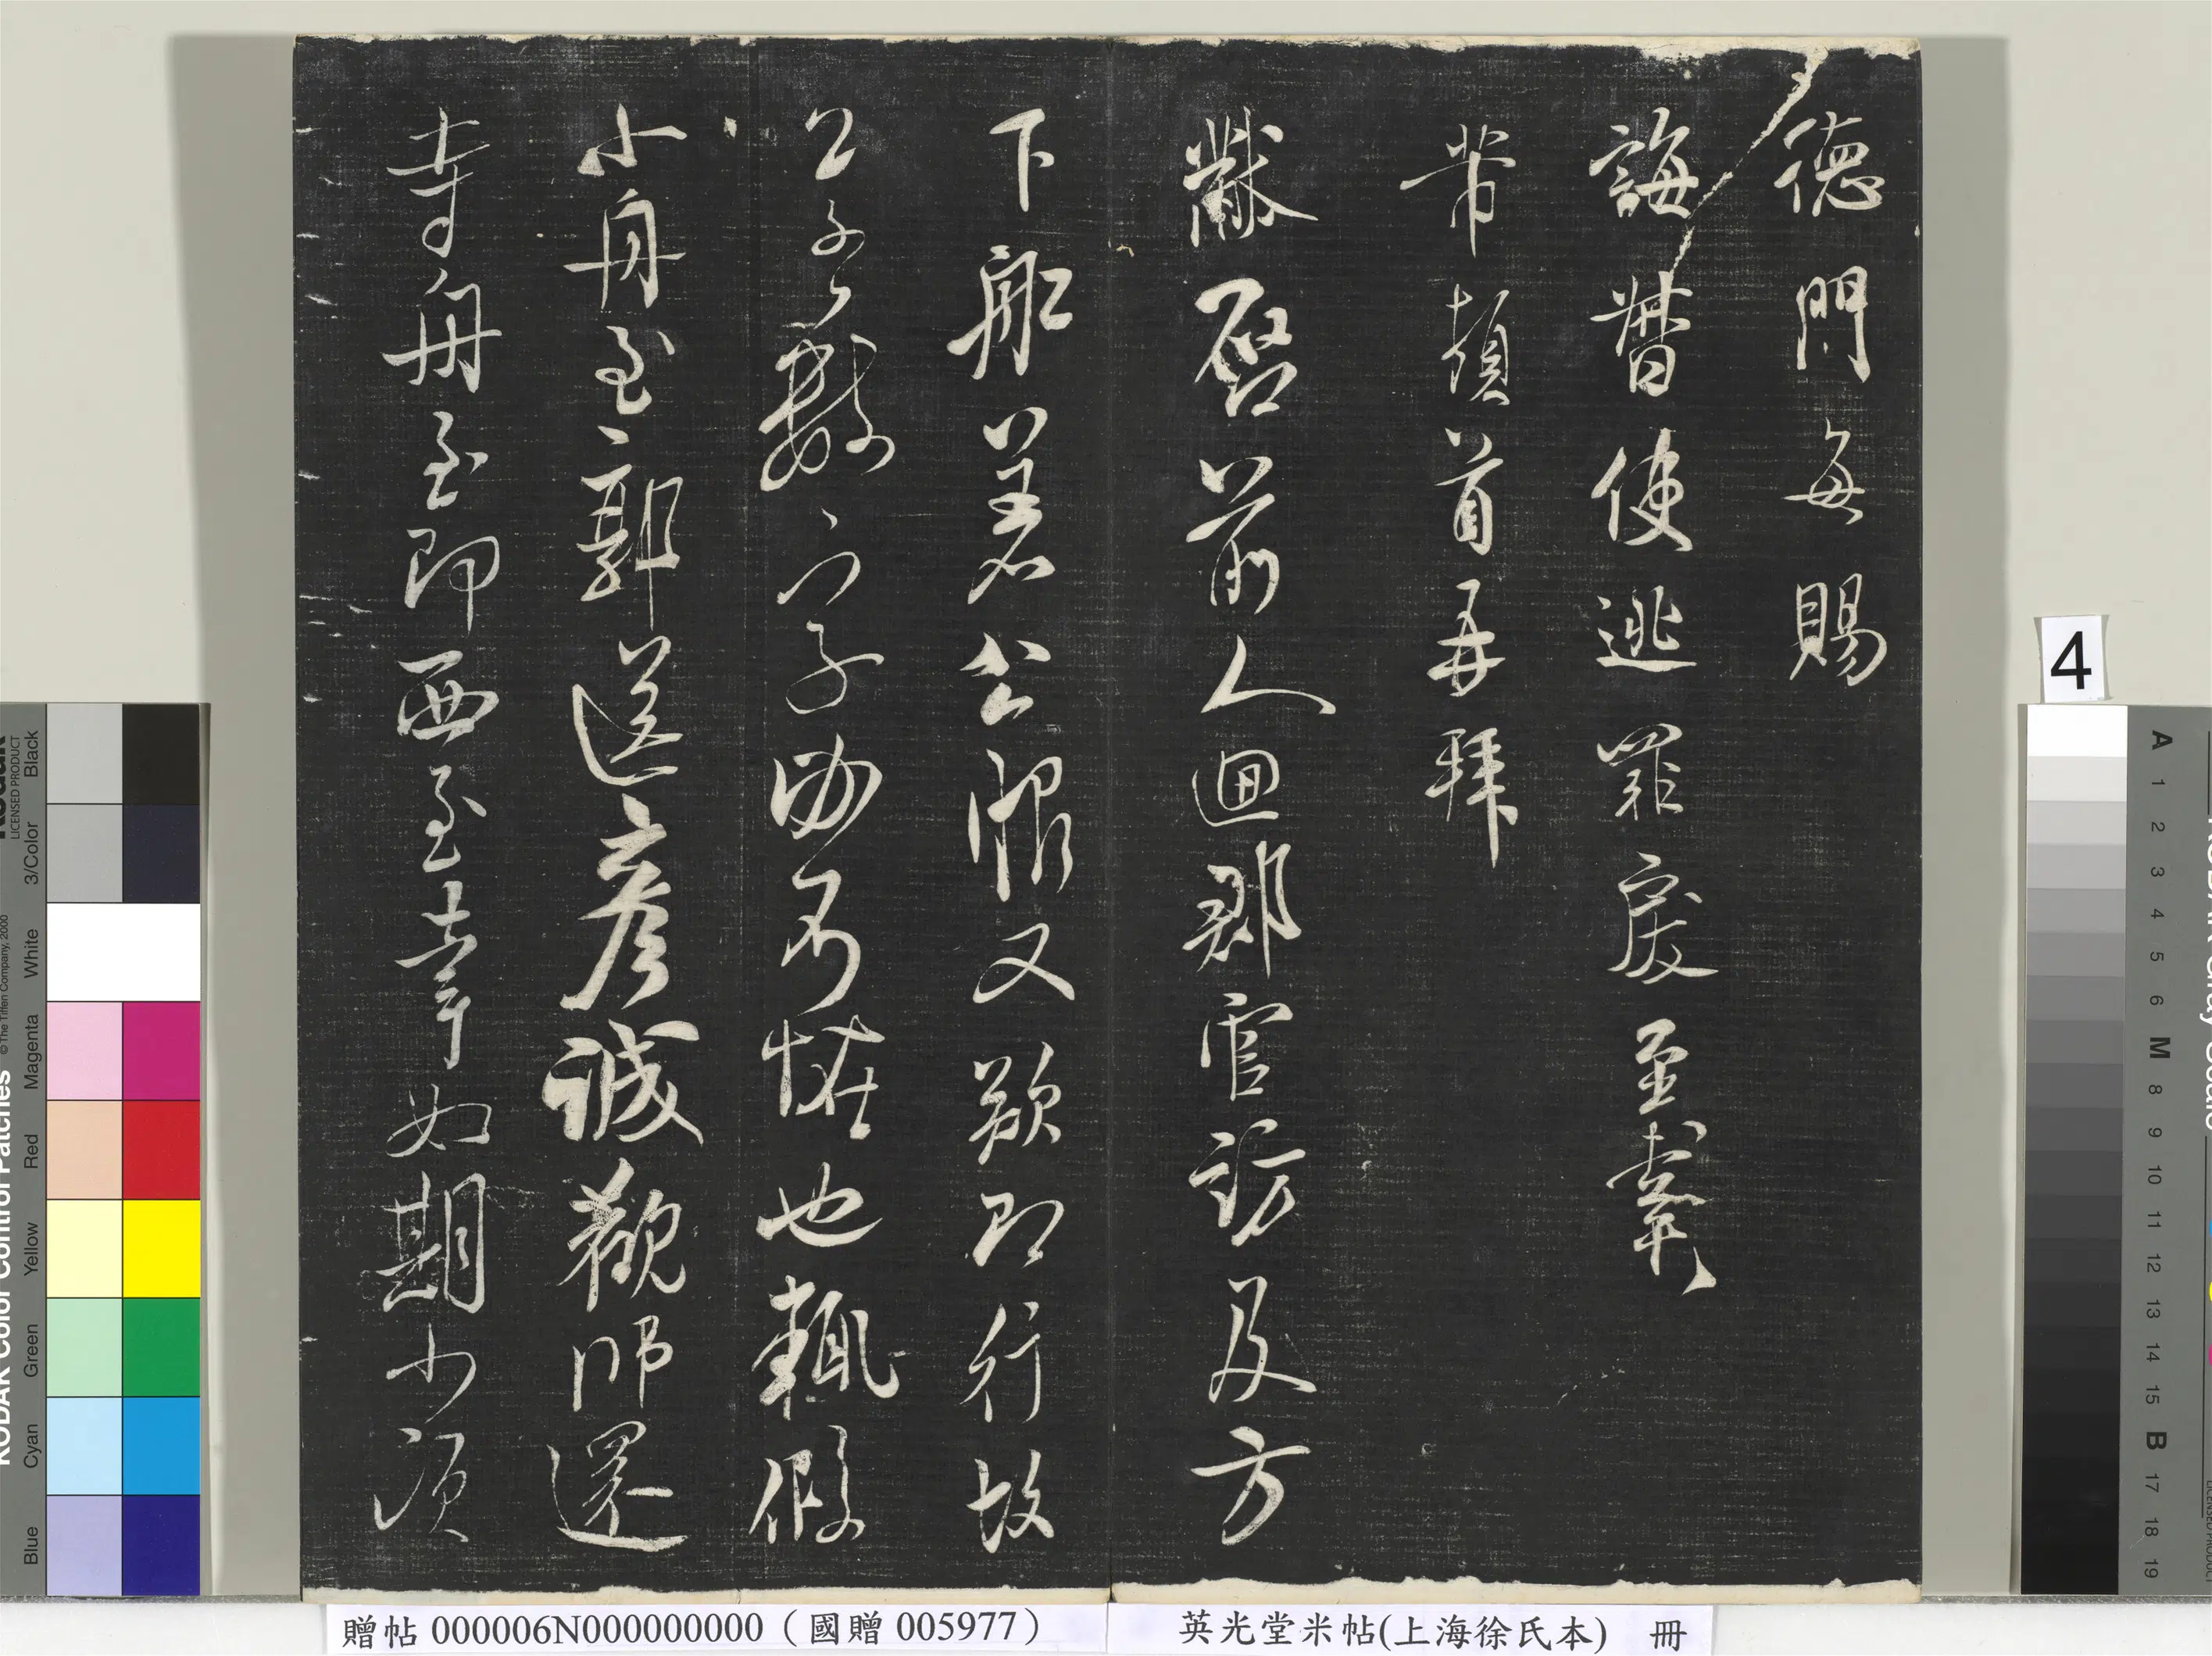 德門每賜
誨督使逃罪戾至幸
芾頓首再拜
黻啓前人迴郡官訪及方
下船著公服又欲即行故
數子幼可恠也輒假
小舟至郭送彥誠歡師還
寺舟至即西至幸如期少須
4
贈帖 000006N000000000（國贈 005977）
英光堂米帖(上海徐氏本) 冊
KODAK Color Control Patches
LICENSED PRODUCT
© The Tiffen Company, 2000
Blue Cyan Green Yellow Red Magenta White 3/Color Black
A 1 2 3 4 5 6 M 8 9 10 11 12 13 14 15 B 17 18 19